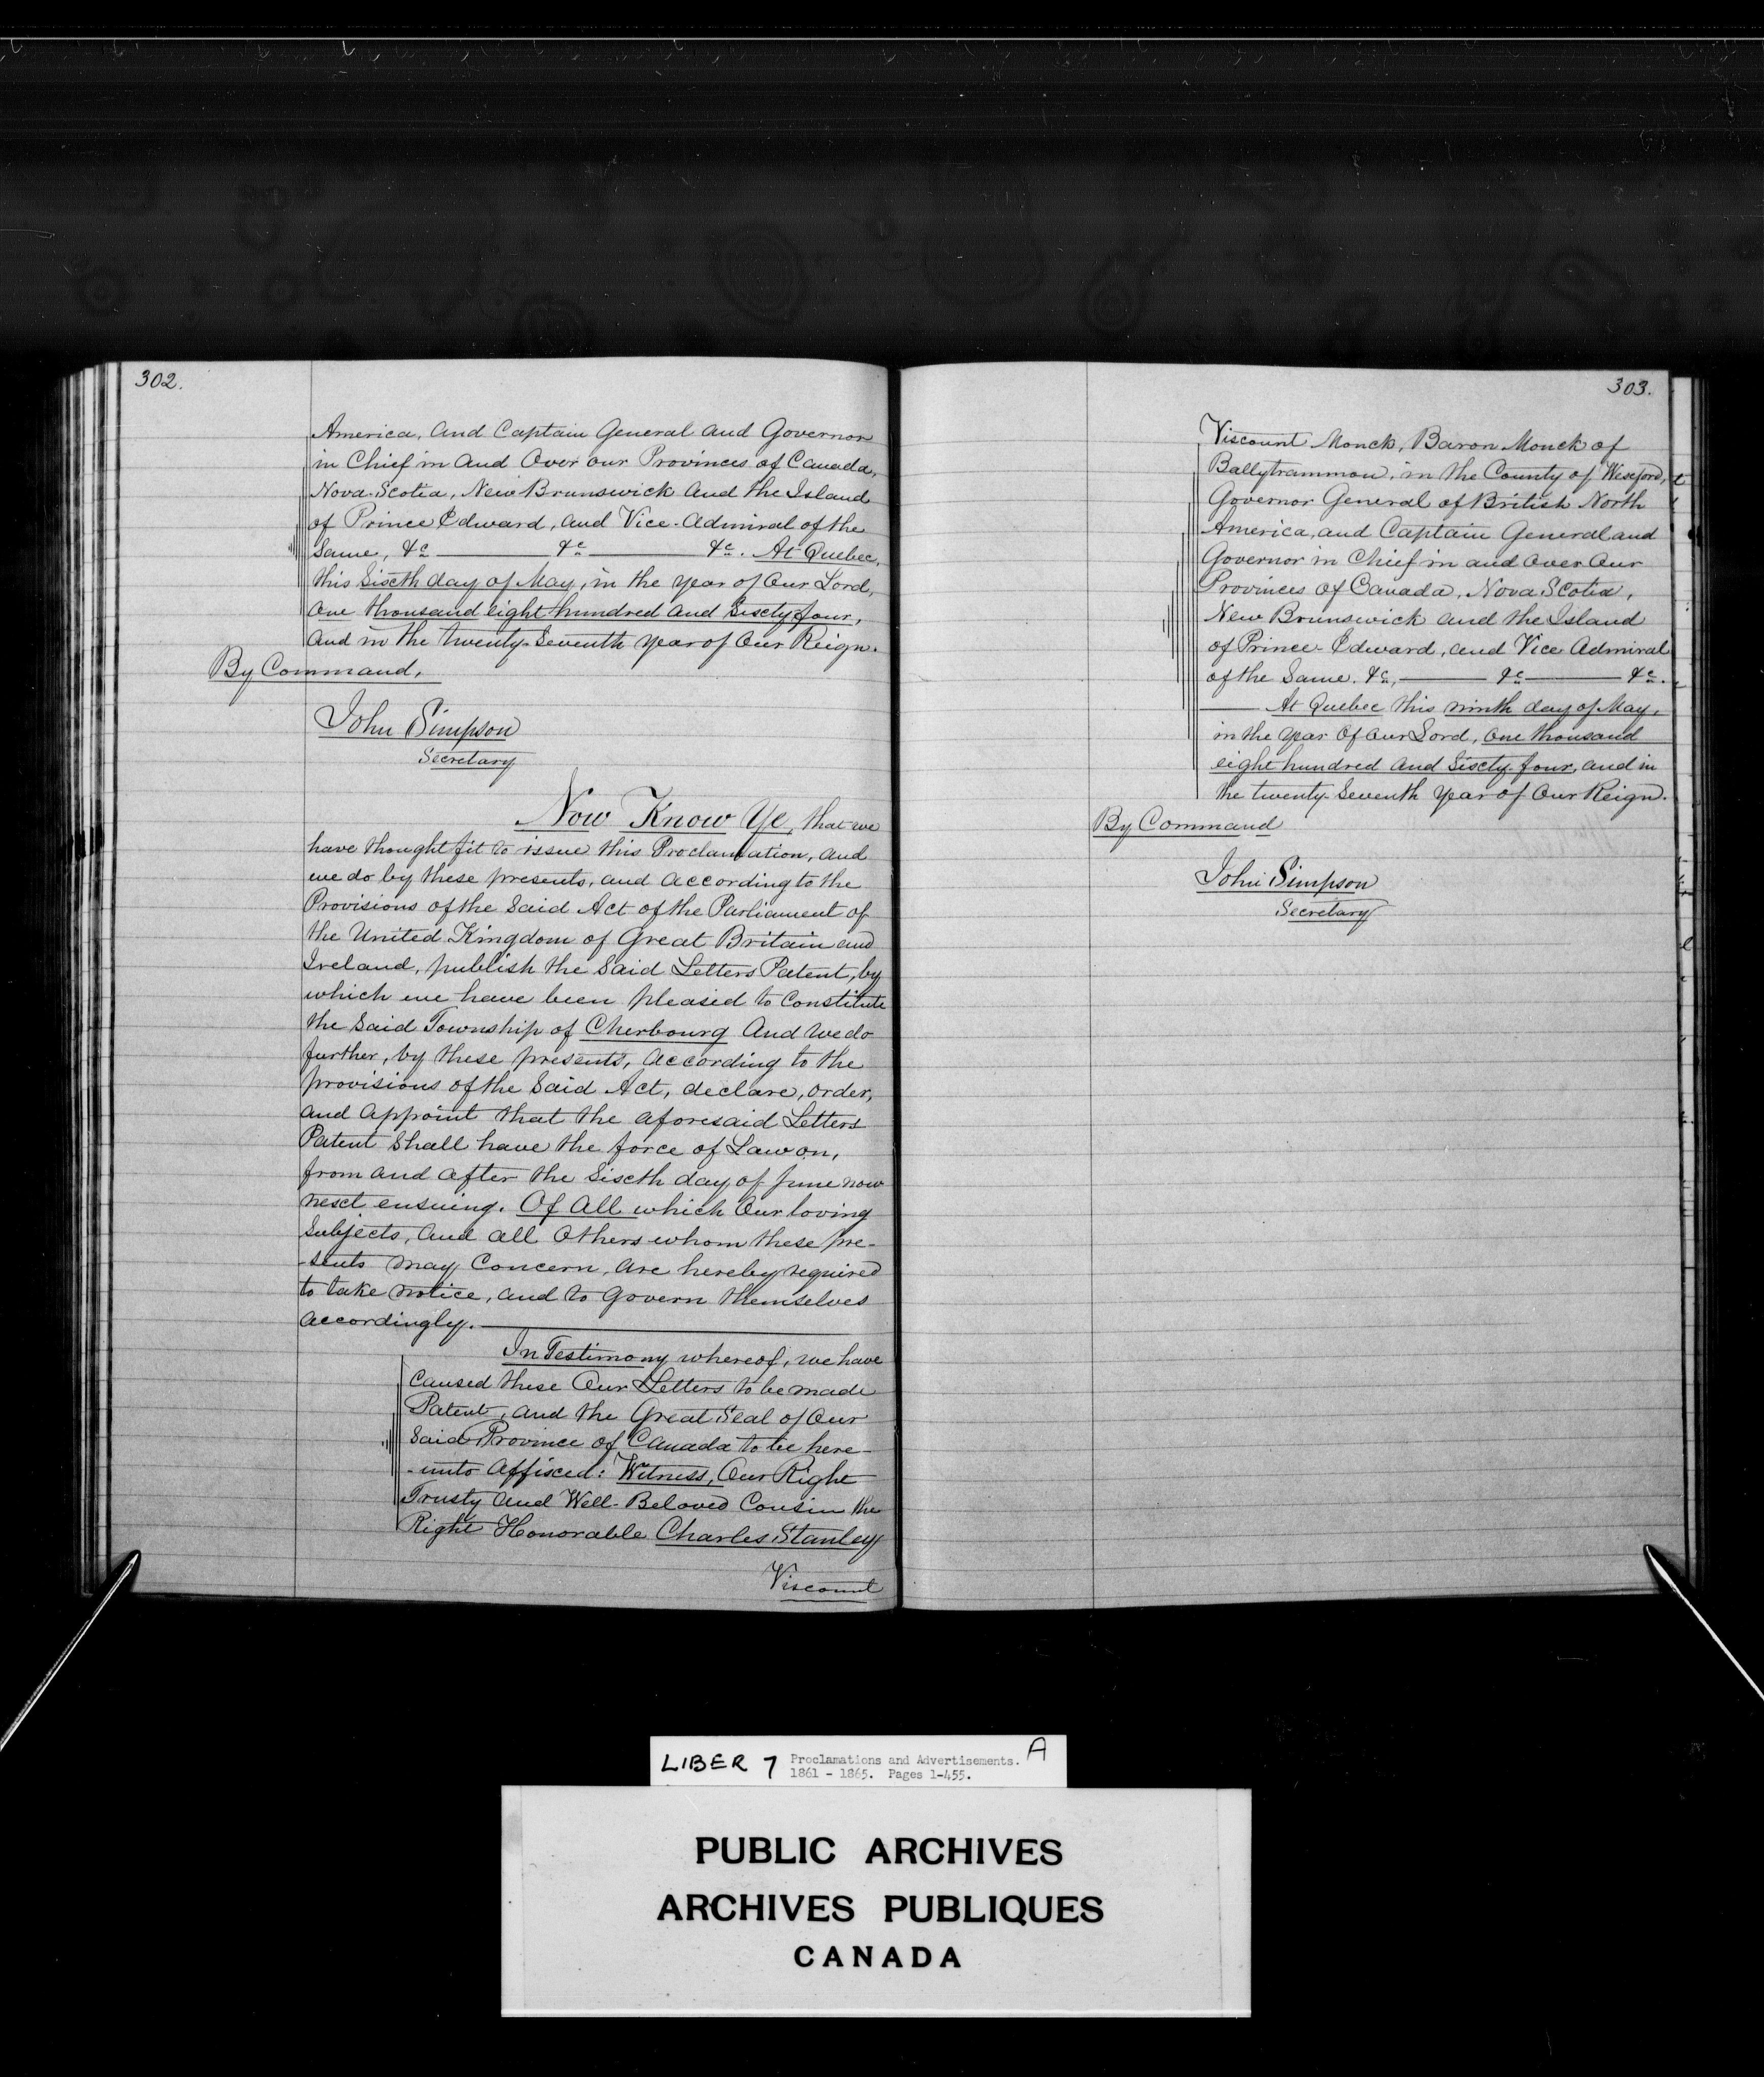 302.
America, and Captain General and Governor
in Chief in and Over our Provinces of Canada,
Nova Scotia, New Brunswick and the Island
of Prince Edward, and Vice-Admiral of the
Same, &c ——— &c ——— &c. At Quebec,
this Sixth day of May, in the year of Our Lord,
One thousand eight hundred and Sixty four,
and in the twenty-Seventh year of Our Reign.
By Command,
John Simpson
Secretary
Now Know Ye, that we
have thought fit to issue this Proclamation, and
we do by these presents, and according to the
Provisions of the Said Act of the Parliament of
the United Kingdom of Great Britain and
Ireland, publish the Said Letters Patent, by
which we have been pleased to Constitute
the Said Township of Cherbourg And we do
further, by these presents, according to the
provisions of the Said Act, declare, order,
and appoint that the aforesaid Letters
Patent Shall have the force of Law on,
from and after the Sixth day of June now
next ensuing. Of All which Our loving
Subjects, and all Others whom these pre-
-sents may Concern, are hereby required
to take notice, and to govern themselves
accordingly. ———
In Testimony whereof, we have
Caused these Our Letters to be made
Patent, and the Great Seal of Our
Said Province of Canada to be here-
-unto Affixed: Witness, Our Right
Trusty and Well-Beloved Cousin the
Right Honorable Charles Stanley
Viscount
303.
Viscount Monck, Baron Monck of
Ballytrammon, in the County of Wexford,
Governor General of British North
America, and Captain General and
Governor in Chief in and Over Our
Provinces of Canada, Nova Scotia,
New Brunswick and the Island
of Prince-Edward, and Vice Admiral
of the Same. &c, ——— &c ——— &c.
——— At Quebec this ninth day of May,
in the year Of Our Lord, One thousand
eight hundred and Sixty-four, and in
the twenty-Seventh year of Our Reign.
By Command
John Simpson
Secretary
LIBER 7 Proclamations and Advertisements. A
1861 - 1865. Pages 1-455.
PUBLIC ARCHIVES
ARCHIVES PUBLIQUES
CANADA